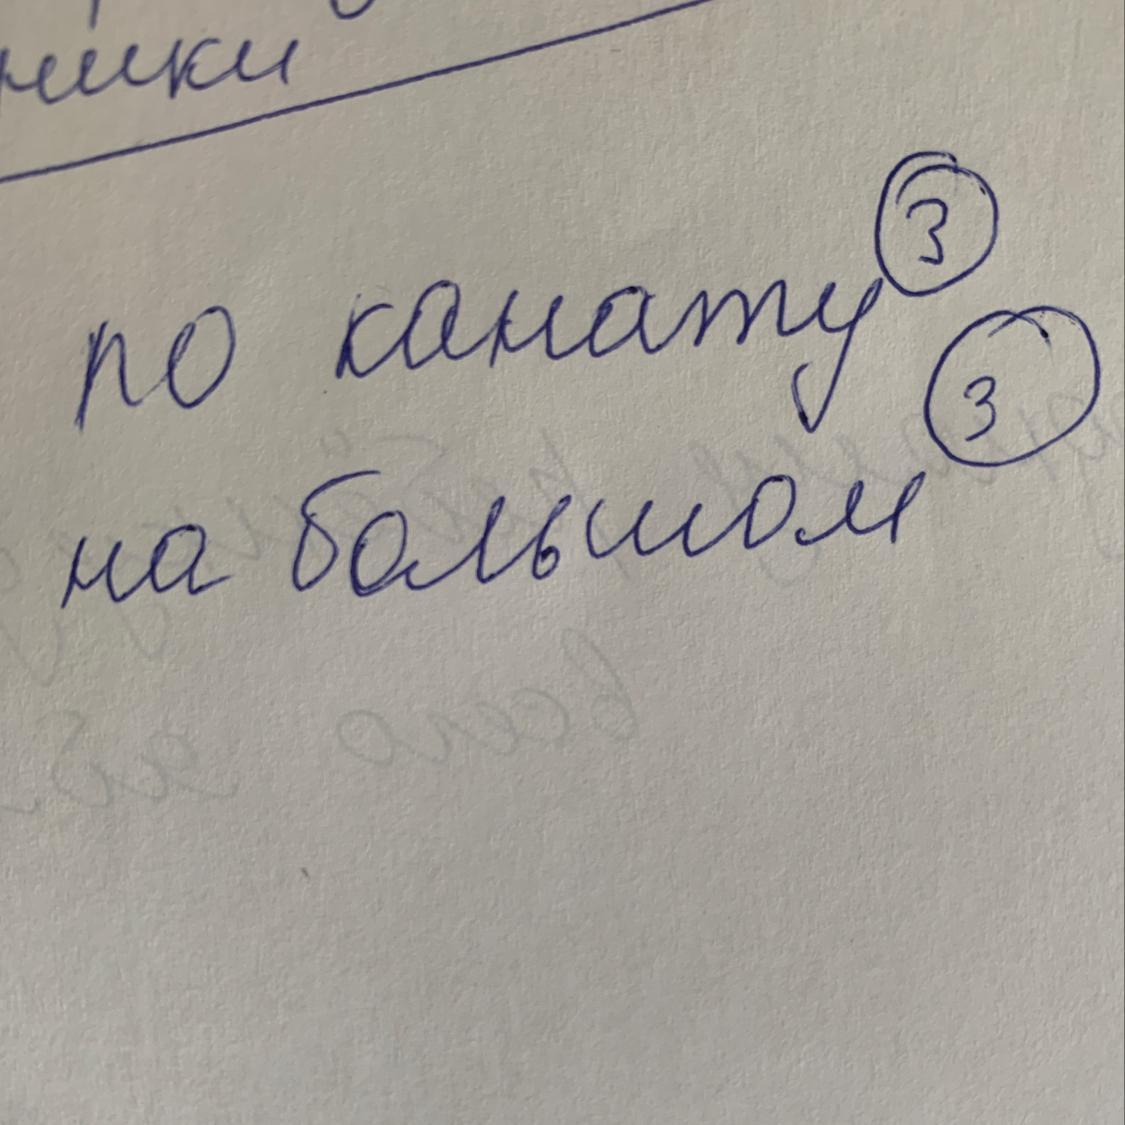 по канату 3
на большом 3